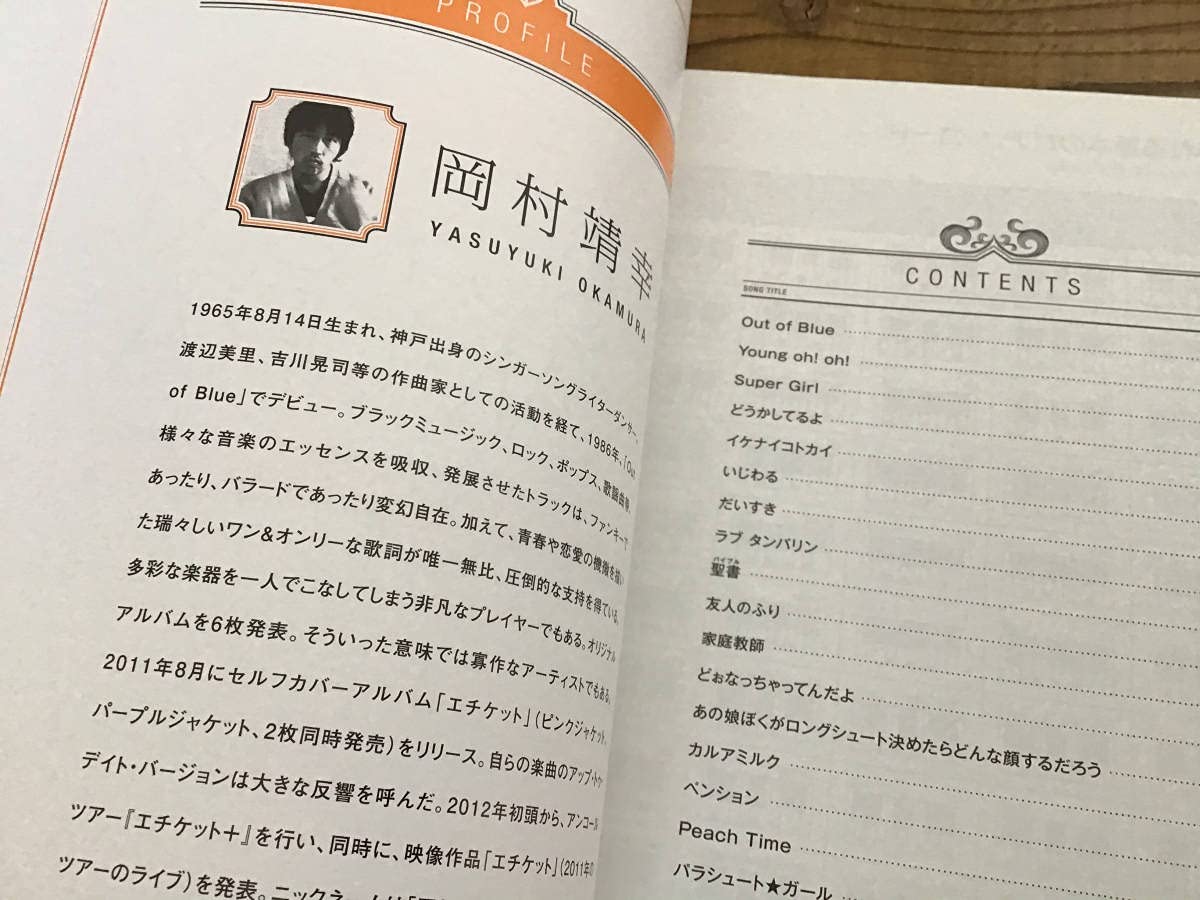 PROFILE
岡村靖幸
YASUYUKI OKAMURA
1965年8月14日生まれ、神戸出身のシンガーソングライターダンサー
渡辺美里、吉川晃司等の作曲家としての活動を経て、1986年、「Out
of Blue」でデビュー。ブラックミュージック、ロック、ポップス、歌謡曲等、
様々な音楽のエッセンスを吸収、発展させたトラックは、ファンキーで
あったり、バラードであったり変幻自在。加えて、青春や恋愛の機微を描い
た瑞々しいワン&オンリーな歌詞が唯一無比、圧倒的な支持を得ている。
多彩な楽器を一人でこなしてしまう非凡なプレイヤーでもある。オリジナル
アルバムを6枚発表。そういった意味では寡作なアーティストでもある。
2011年8月にセルフカバーアルバム「エチケット」(ピンクジャケット、
パープルジャケット、2枚同時発売)をリリース。自らの楽曲のアップ・トゥ・
デイト・バージョンは大きな反響を呼んだ。2012年初頭から、アンコール
ツアー『エチケット+』を行い、同時に、映像作品「エチケット」(2011年の
ツアーのライブ)を発表。ニックネームは
CONTENTS
SONG TITLE
Out of Blue
Young oh! oh!
Super Girl
どうかしてるよ
イケナイコトカイ
いじわる
だいすき
ラブ タンバリン
バイブル
聖書
友人のふり
家庭教師
どぉなっちゃってんだよ
あの娘ぼくがロングシュート決めたらどんな顔するだろう
カルアミルク
ペンション
Peach Time
パラシュート★ガール